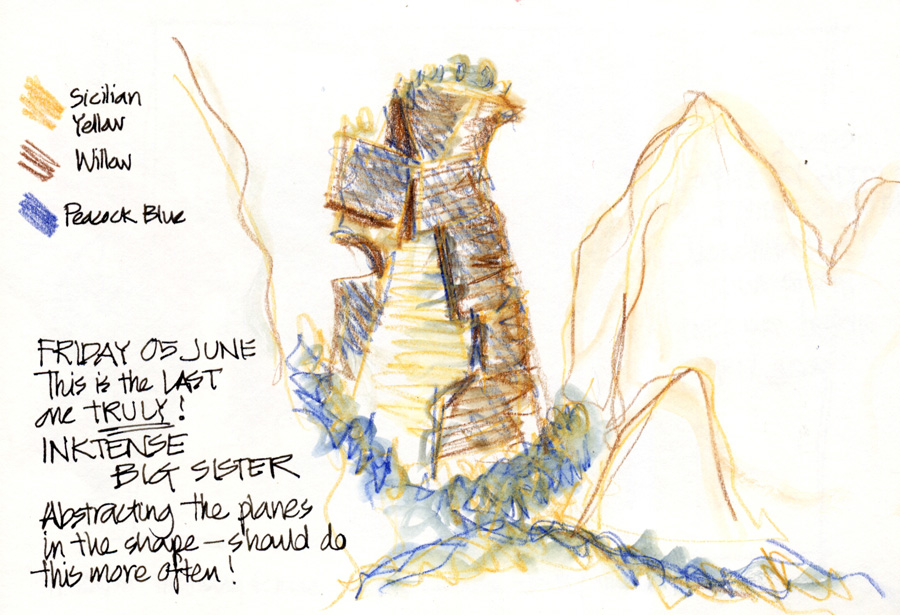 Sicilian
Yellow
Willow
Peacock Blue
FRIDAY 05 JUNE
This is the LAST
one TRULY!
INKTENSE
BIG SISTER
Abstracting the planes
in the shape – should do
this more often!